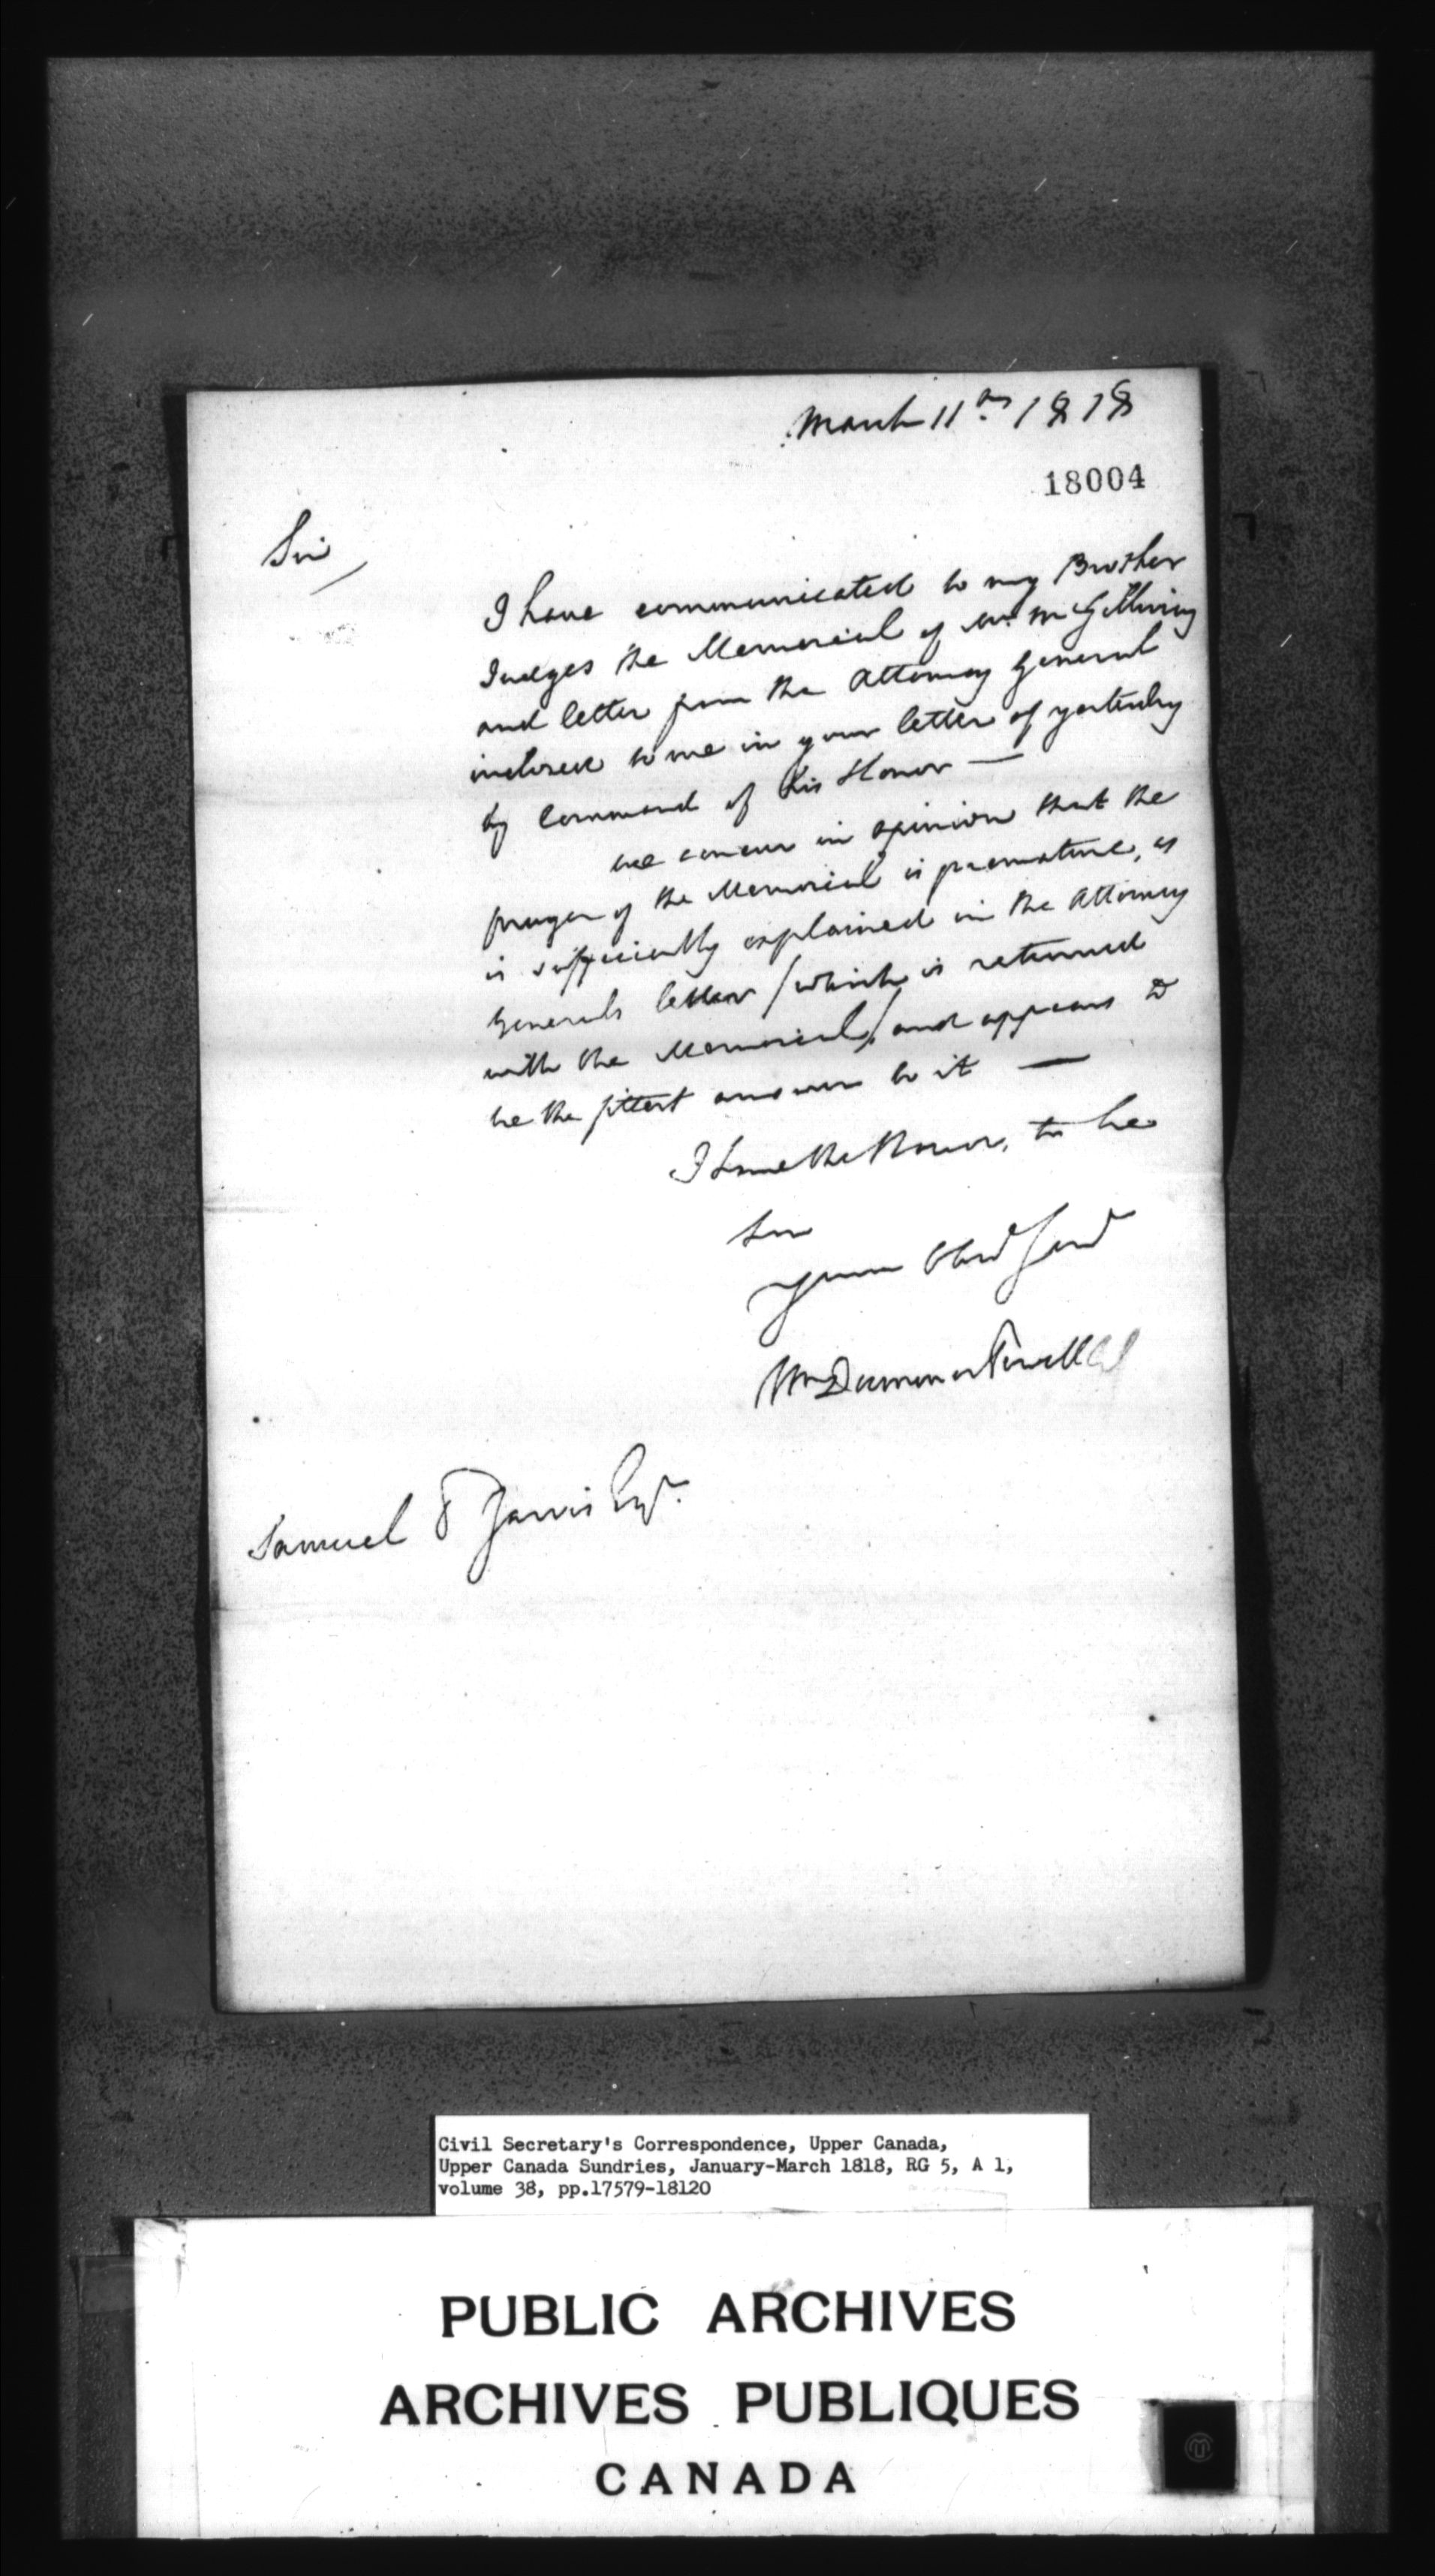 March 11th 1818
18004
Sir
I have communicated to my Brother
Judges the Memorial of Mr. McGillivray
and letter from the Attorney General
inclosed to me in your letter of yesterday
by Command of his Honor —
we concur in opinion that the
prayer of the Memorial is premature, as
is sufficiently explained in the Attorney
Generals letter / which is returned
with the Memorial / and appears to
be the fittest answer to it —
I have the Honor, to be
Sir
your obed Servt
Wm Dummer Powell CJ
Samuel P Jarvis Esqr.
Civil Secretary's Correspondence, Upper Canada,
Upper Canada Sundries, January-March 1818, RG 5, A 1,
volume 38, pp.17579-18120
PUBLIC ARCHIVES
ARCHIVES PUBLIQUES
CANADA